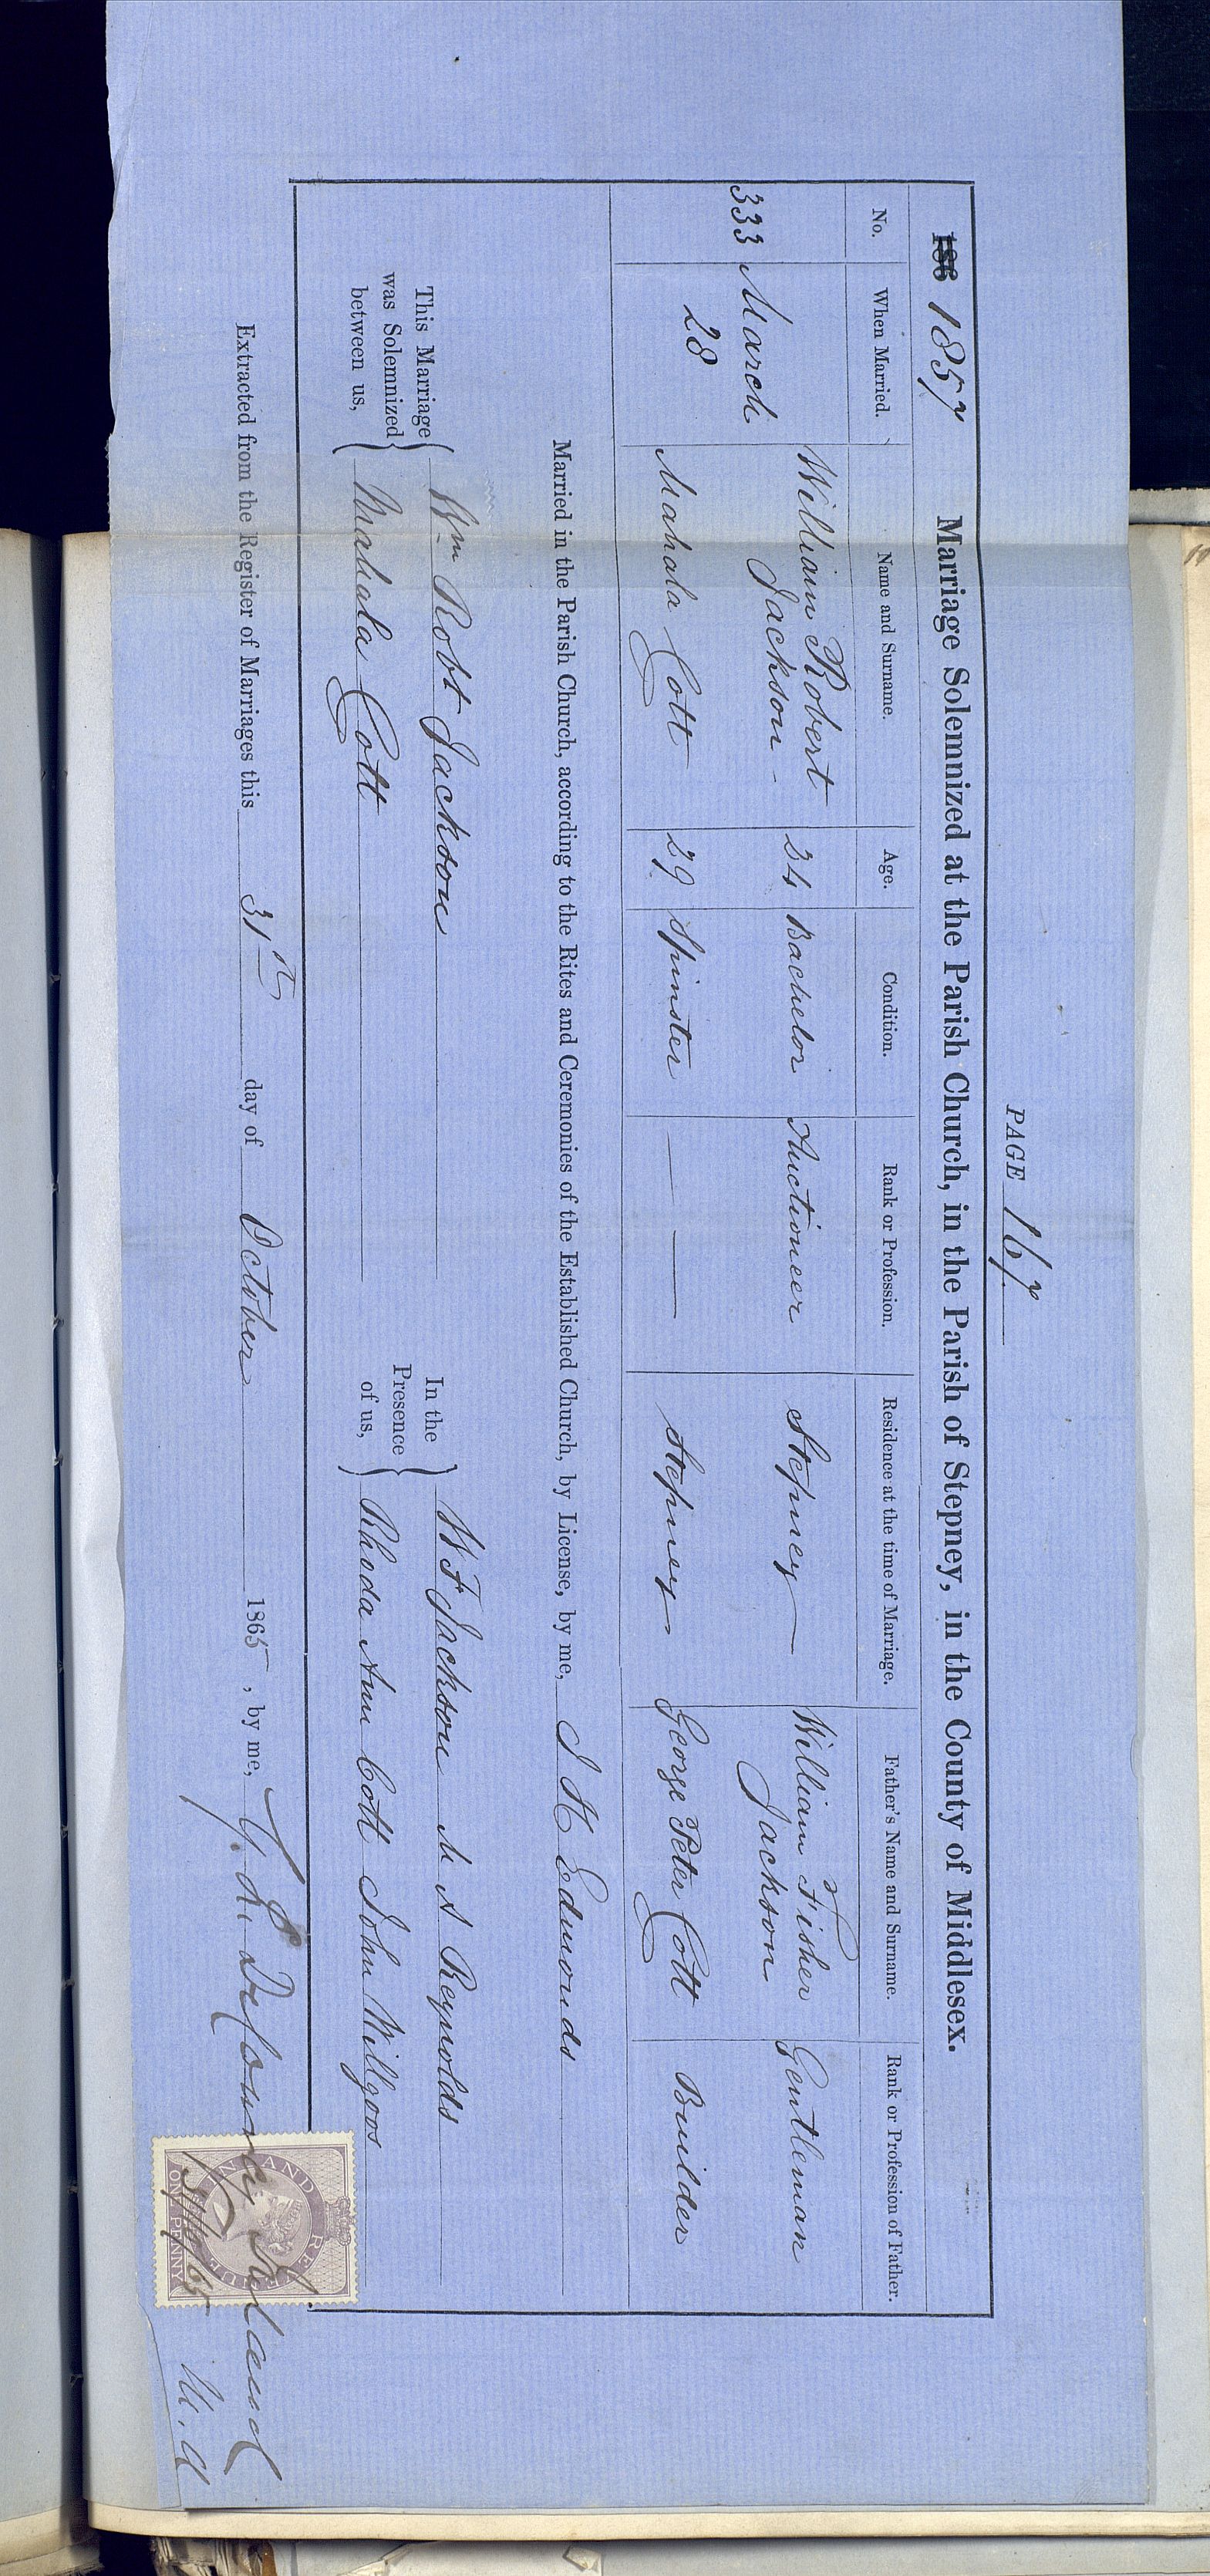 PAGE 167
186 1857 Marriage Solemnized at the Parish Church, in the Parish of Stepney, in the County of Middlesex.
No. When Married. Name and Surname. Age. Condition. Rank or Profession. Residence at the time of Marriage. Father's Name and Surname. Rank or Profession of Father.
333 March 28 William Robert Jackson 24 Bachelor Auctioneer Stepney William Fisher Jackson Gentleman
Mahala Cott 29 Spinster Stepney George Peter Cott Builder
Married in the Parish Church, according to the Rites and Ceremonies of the Established Church, by License, by me, J H Edmonds
This Marriage was Solemnized between us,
Wm Robt Jackson
Mahala Cott
In the Presence of us,
W F Jackson M A Reynolds
Rhoda Ann Cott John Willgoos
Extracted from the Register of Marriages this 31st day of October 1865, by me,
INLAND REVENUE
ONE PENNY